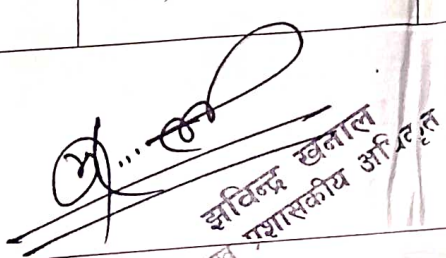 झविन्द्र खनाल
प्रशासकीय अधिकृत